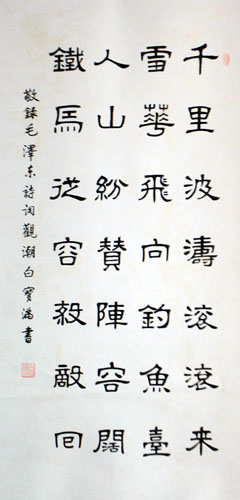 千里波濤滚滚来
雪華飛向釣魚臺
人山紛贊陣容闊
鐵馬從容殺敵回
敬錄毛澤東詩詞觀潮白寶滿書